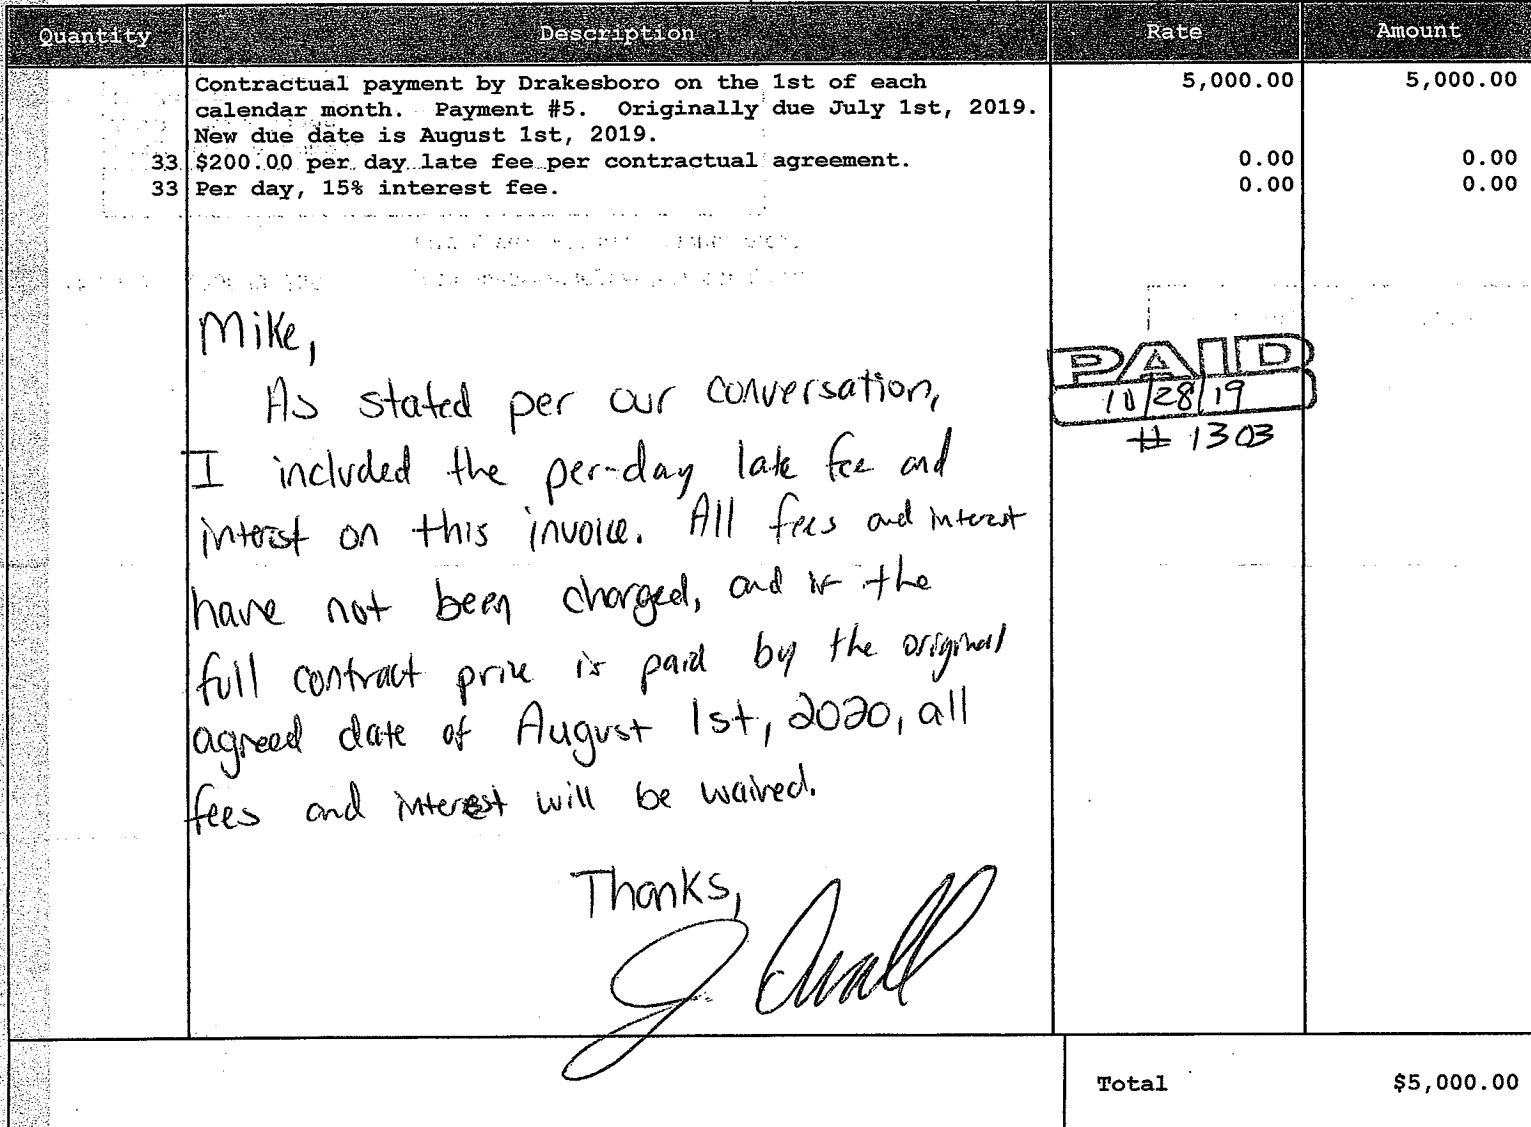 Quantity Description Rate Amount
Contractual payment by Drakesboro on the 1st of each 5,000.00 5,000.00
calendar month. Payment #5. Originally due July 1st, 2019.
New due date is August 1st, 2019.
33 $200.00 per day late fee per contractual agreement. 0.00 0.00
33 Per day, 15% interest fee. 0.00 0.00
Mike,
As stated per our conversation,
I included the per-day late fee and
interest on this invoice. All fees and interest
have not been charged, and if the
full contract price is paid by the original
agreed date of August 1st, 2020, all
fees and interest will be waived.
Thanks,
PAID
10/28/19
# 1303
Total $5,000.00